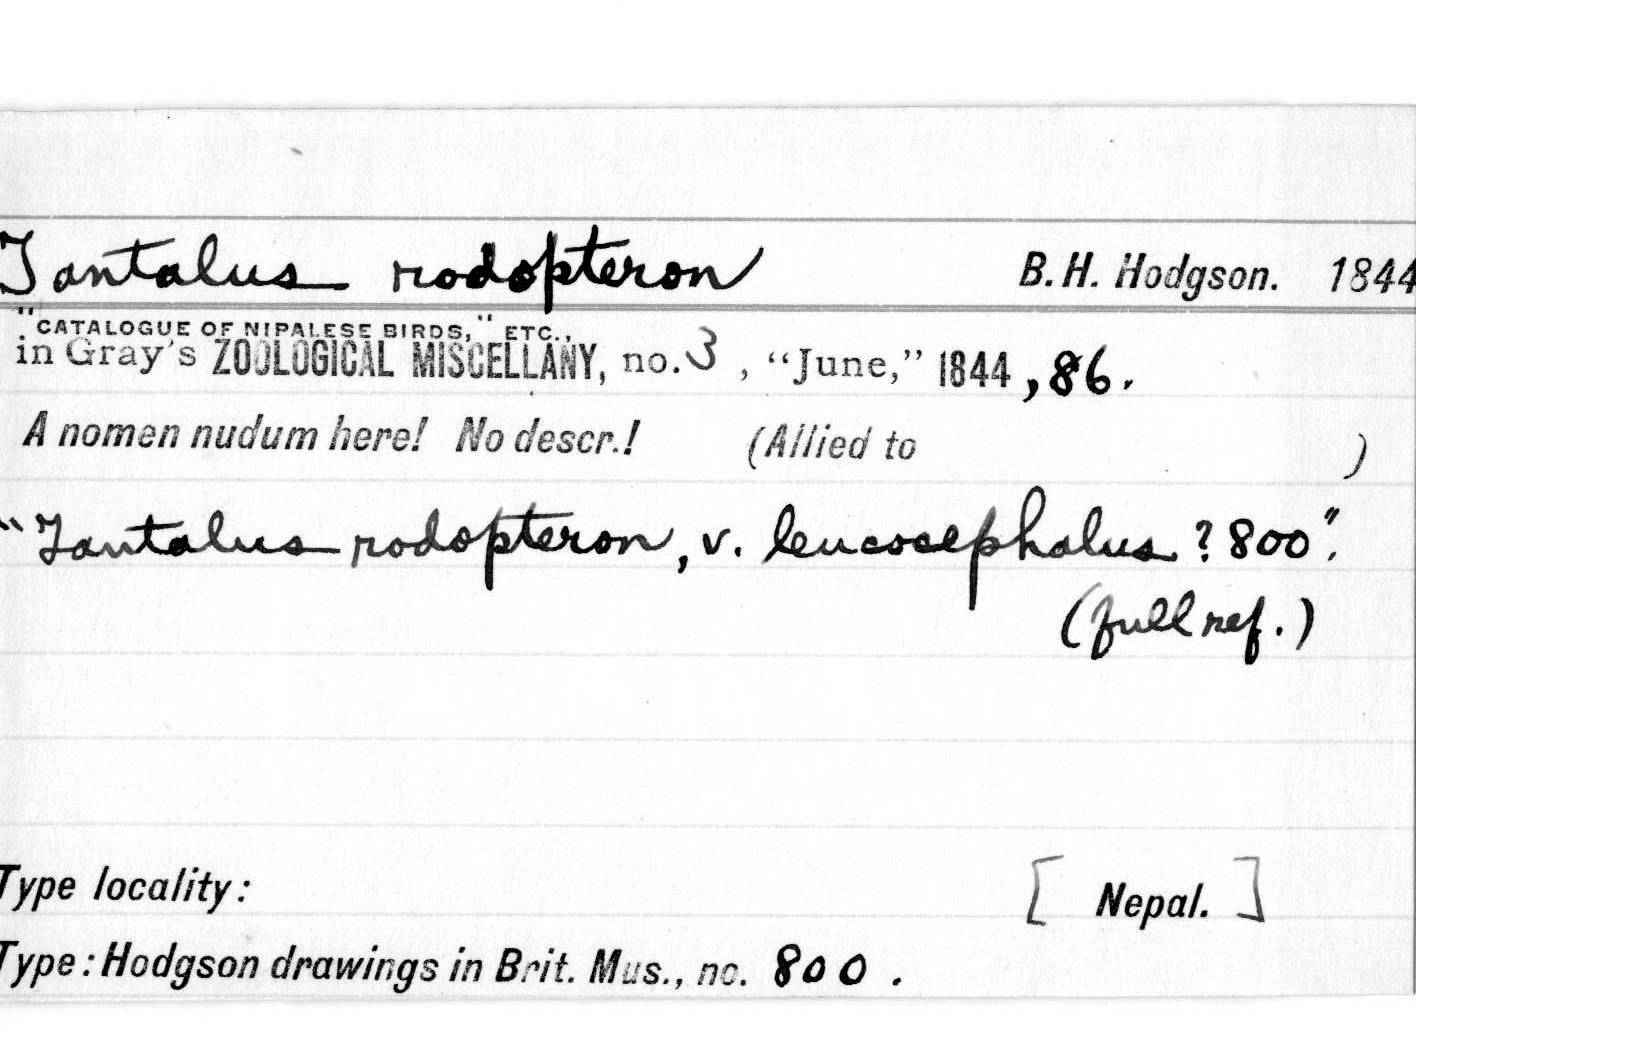 Tantalus rodopteron B. H. Hodgson. 1844
"CATALOGUE OF NIPALESE BIRDS," ETC.,
in Gray's ZOOLOGICAL MISCELLANY, no. 3, "June," 1844, 86.
A nomen nudum here! No descr.! (Allied to )
"Tantalus rodopteron, v. leucocephalus? 800".
(full ref.)
Type locality: [Nepal.]
Type: Hodgson drawings in Brit. Mus., no. 800.